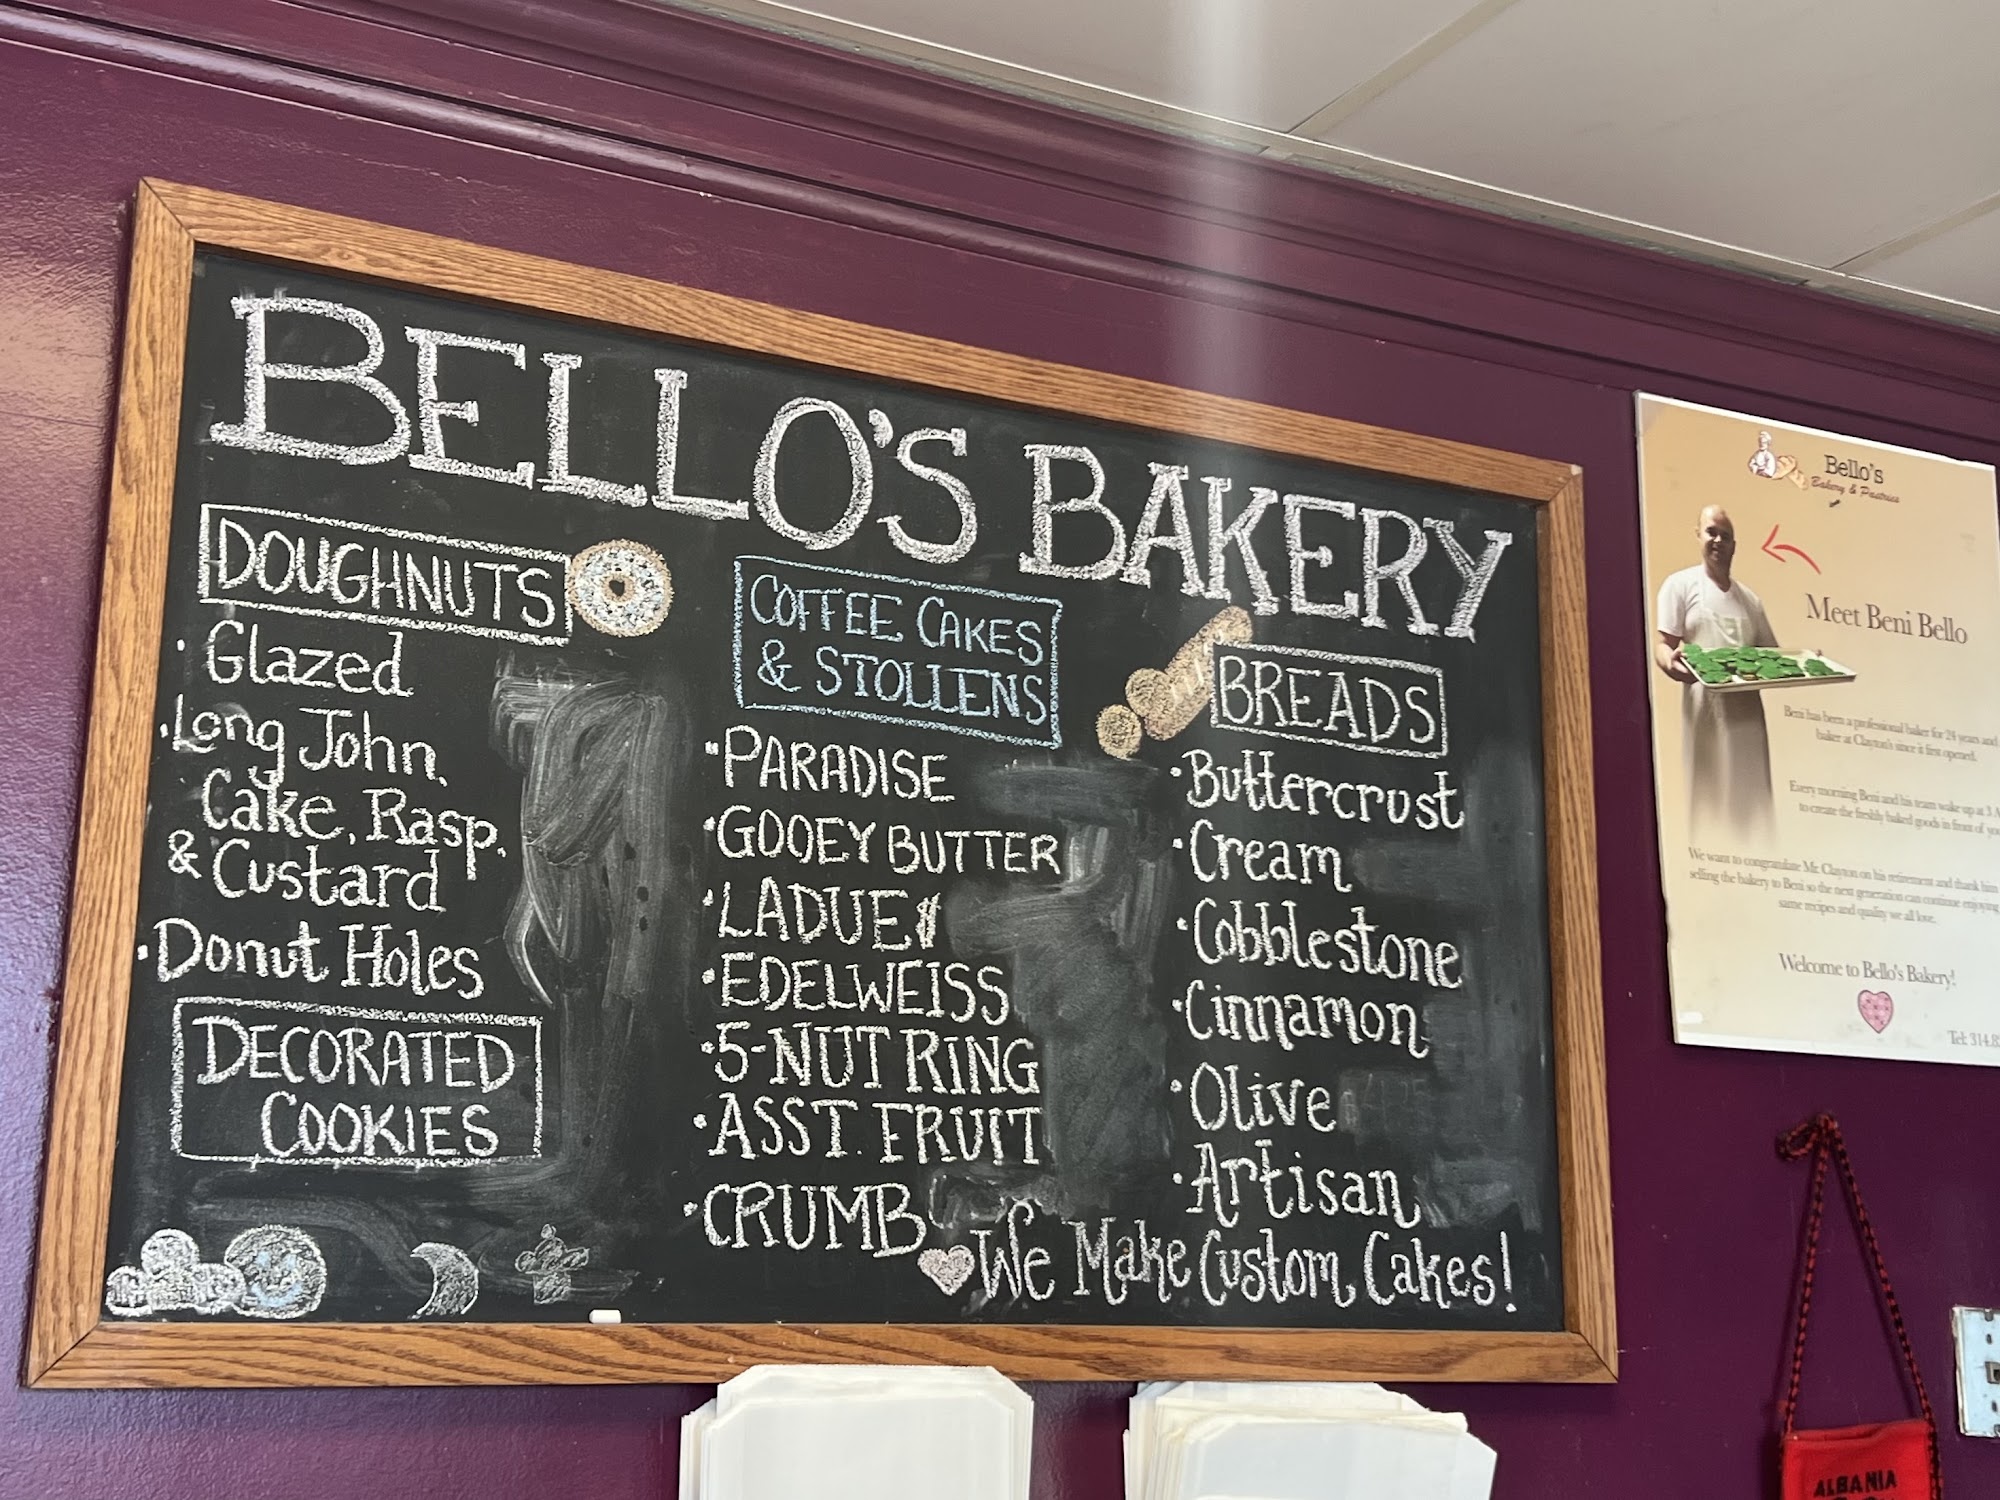 BELLO'S BAKERY
DOUGHNUTS
· Glazed
· Long John,
Cake, Rasp.
& Custard
· Donut Holes
DECORATED
COOKIES
COFFEE CAKES
& STOLLENS
· PARADISE
· GOOEY BUTTER
· LADUE
· EDELWEISS
· 5-NUT RING
· ASST. FRUIT
· CRUMB
BREADS
· Buttercrust
· Cream
· Cobblestone
· Cinnamon
· Olive
· Artisan
We Make Custom Cakes!
Bello's
Bakery & Pastries
Meet Beni Bello
Beni has been a professional baker for 24 years and
baker at Clayton's since it first opened.
Every morning Beni and his team wake up at 3 A
to create the freshly baked goods in front of yo
We want to congratulate Mr. Clayton on his retirement and thank him
selling the bakery to Beni so the next generation can continue enjoying
same recipes and quality we all love.
Welcome to Bello's Bakery!
Tel: 314.8
ALBANIA